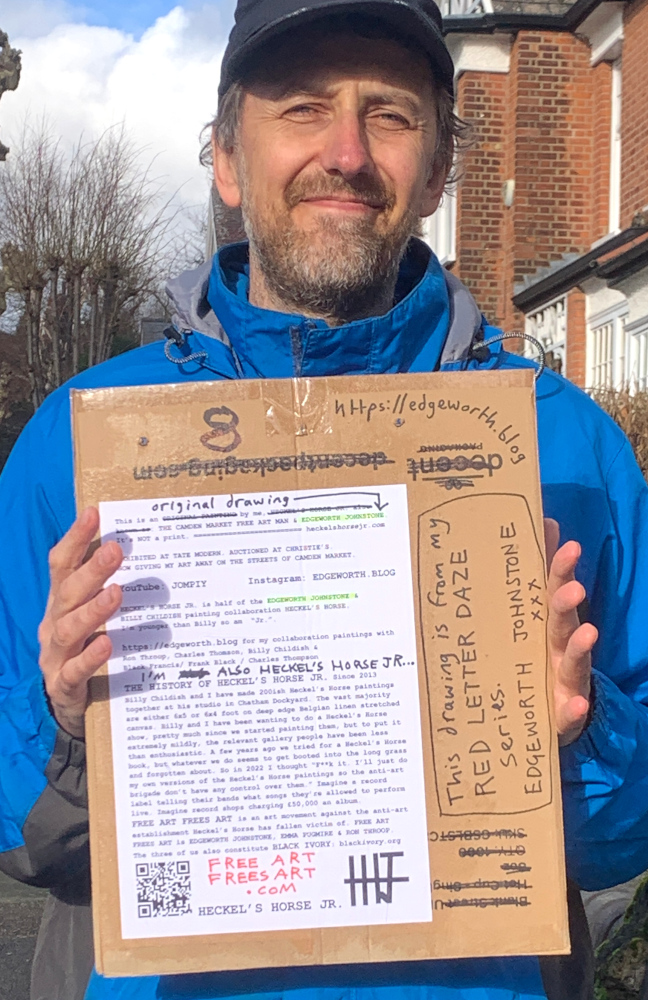 8
https://edgeworth.blog
decentpackaging.com
decent
PACKAGING
original drawing
This is an ORIGINAL PAINTING by me, HECKEL'S HORSE JR. also
known as THE CAMDEN MARKET FREE ART MAN & EDGEWORTH JOHNSTONE.
It's NOT a print. heckelshorsejr.com
EXHIBITED AT TATE MODERN. AUCTIONED AT CHRISTIE'S.
NOW GIVING MY ART AWAY ON THE STREETS OF CAMDEN MARKET.
YouTube: JOMPIY Instagram: EDGEWORTH.BLOG
HECKEL'S HORSE JR. is half of the EDGEWORTH JOHNSTONE &
BILLY CHILDISH painting collaboration HECKEL'S HORSE.
I'm younger than Billy so am "Jr.".
https://edgeworth.blog for my collaboration paintings with
Ron Throop, Charles Thomson, Billy Childish &
Black Francis/ Frank Black / Charles Thompson
I'M ALSO HECKEL'S HORSE JR...
THE HISTORY OF HECKEL'S HORSE JR. Since 2013
Billy Childish and I have made 200ish Heckel's Horse paintings
together at his studio in Chatham Dockyard. The vast majority
are either 6x5 or 6x4 foot on deep edge Belgian linen stretched
canvas. Billy and I have been wanting to do a Heckel's Horse
show, pretty much since we started painting them, but to put it
extremely mildly, the relevant gallery people have been less
than enthusiastic. A few years ago we tried for a Heckel's Horse
book, but whatever we do seems to get booted into the long grass
and forgotten about. So in 2022 I thought "F**k it. I'll just do
my own versions of the Heckel's Horse paintings so the anti-art
brigade don't have any control over them." Imagine a record
label telling their bands what songs they're allowed to perform
live. Imagine record shops charging £50,000 an album.
FREE ART FREES ART is an art movement against the anti-art
establishment Heckel's Horse has fallen victim of. FREE ART
FREES ART is EDGEWORTH JOHNSTONE, EMMA PUGMIRE & RON THROOP.
The three of us also constitute BLACK IVORY: blackivozy.org
FREE ART
FREES ART
.COM
HECKEL'S HORSE JR.
This drawing is from my
RED LETTER DAZE
series.
EDGEWORTH JOHNSTONE
xxx
QTY: 1000